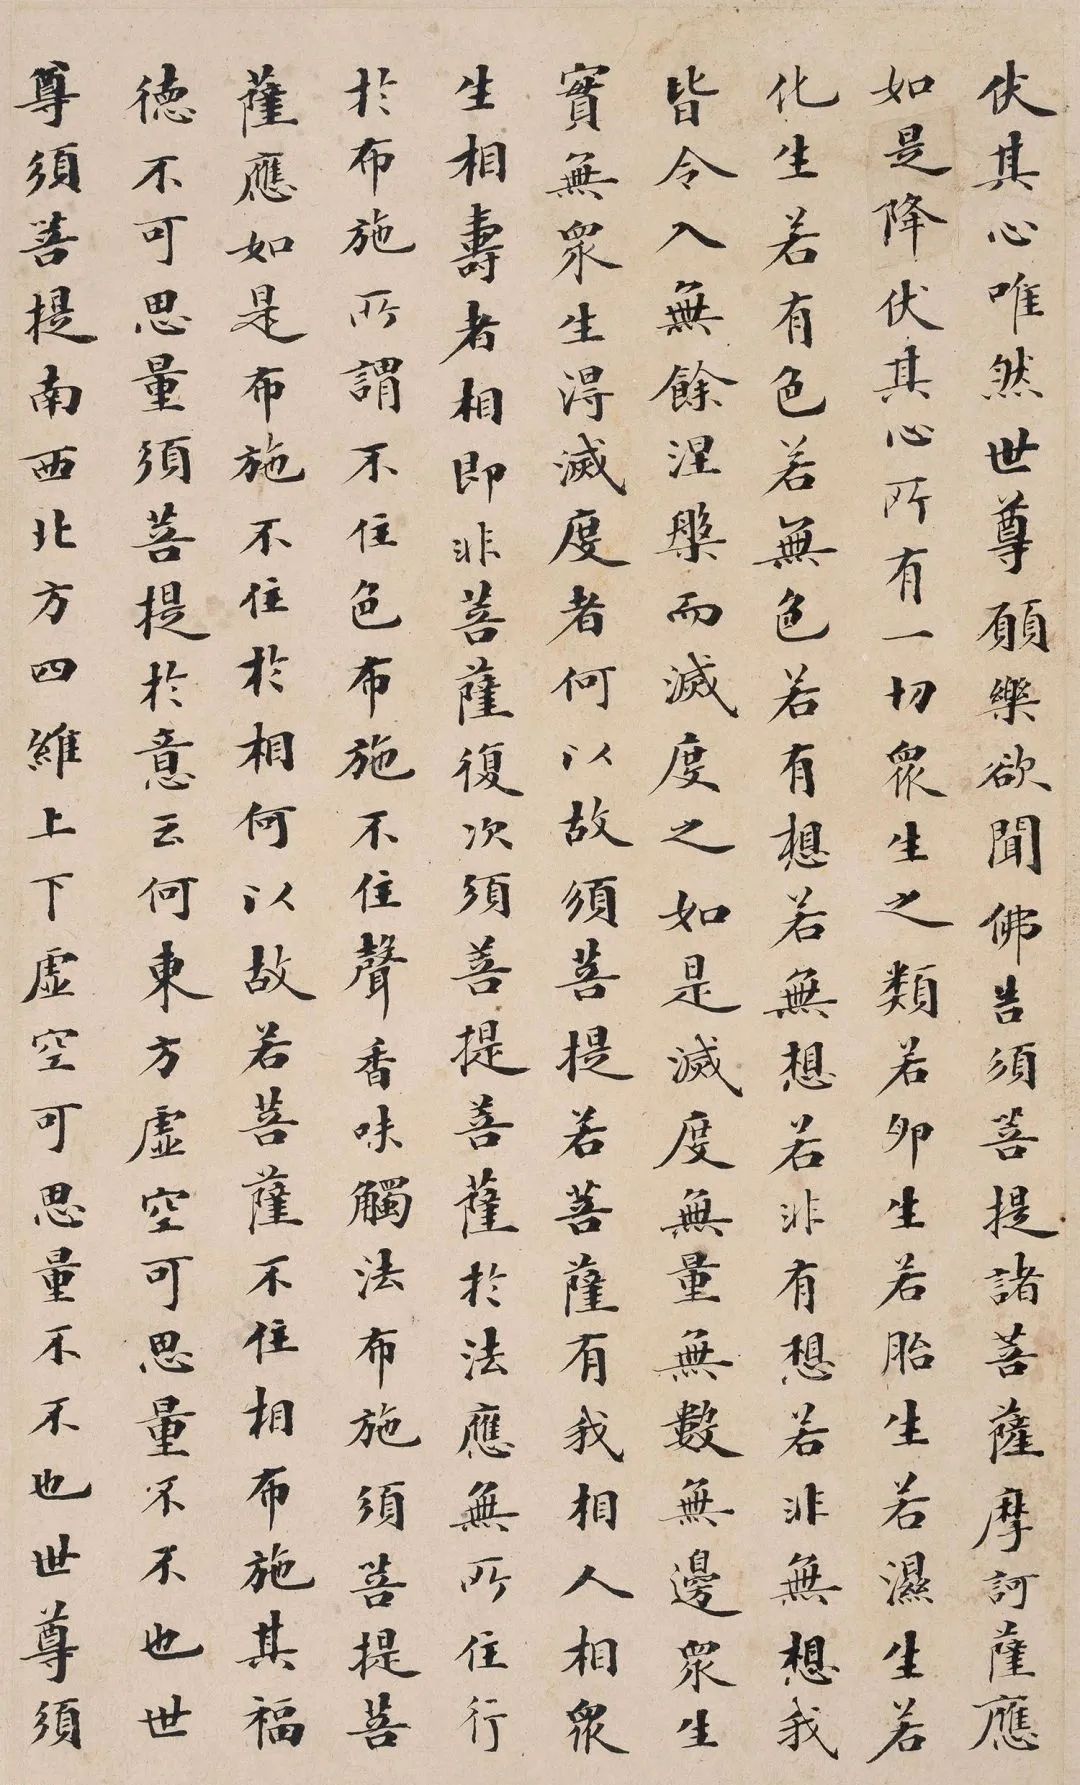 伏其心唯然世尊願樂欲聞佛告須菩提諸菩薩摩訶薩應
如是降伏其心所有一切眾生之類若卵生若胎生若濕生若
化生若有色若無色若有想若無想若非有想若非無想我
皆令入無餘涅槃而滅度之如是滅度無量無數無邊眾生
實無眾生得滅度者何以故須菩提若菩薩有我相人相眾
生相壽者相即非菩薩復次須菩提菩薩於法應無所住行
於布施所謂不住色布施不住聲香味觸法布施須菩提菩
薩應如是布施不住於相何以故若菩薩不住相布施其福
德不可思量須菩提於意云何東方虛空可思量不不也世
尊須菩提南西北方四維上下虛空可思量不不也世尊須